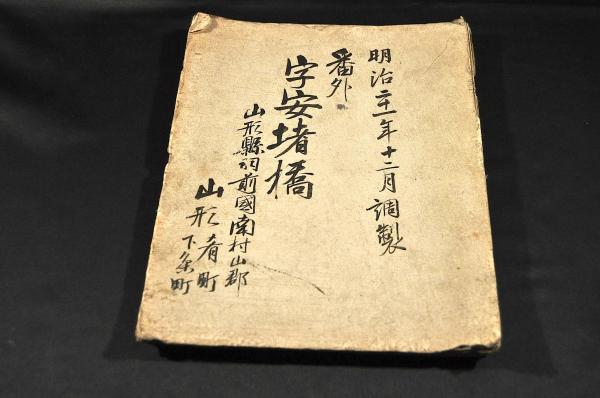 明治二十一年十二月調製
番外
字安堵橋
山形縣羽前國南村山郡
山形肴町
下条町